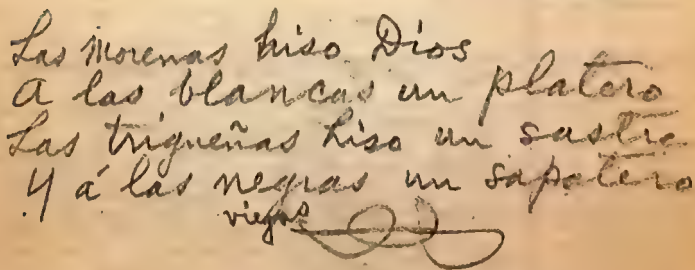 Las Morenas hiso Dios
A las blancas un platero
Las trigueñas hiso un sastre
Y á las negras un sapatero
viejo